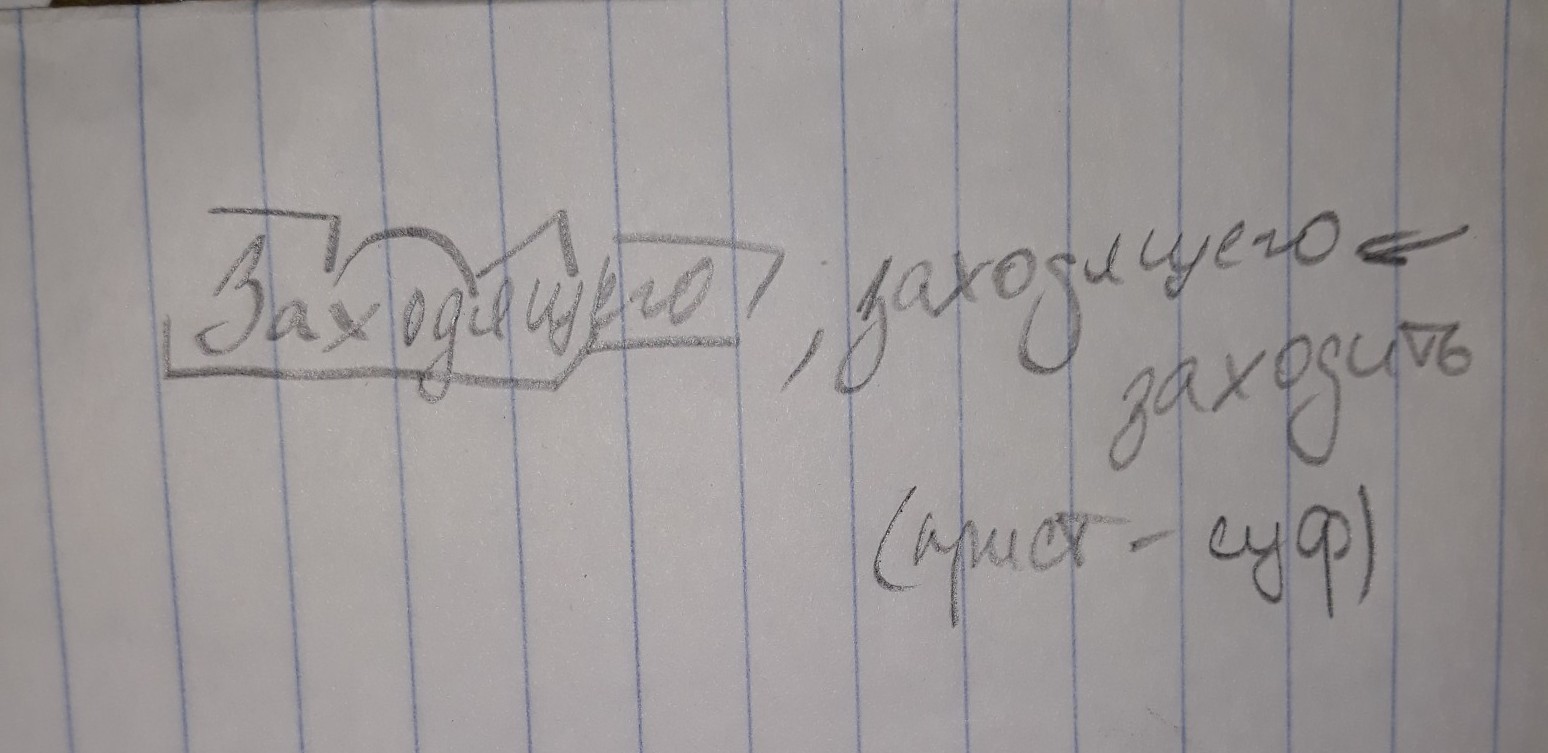 Заходящего, заходящего <
заходить
(прист - суф)